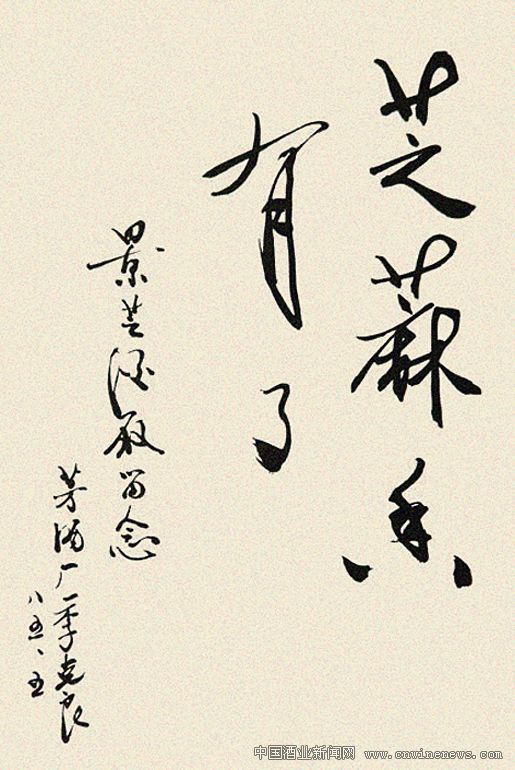 芝蔴香
有了
景芝酒厰留念
茅酒厂季克良
八五、五
中国酒业新闻网 www.cnwinenews.com